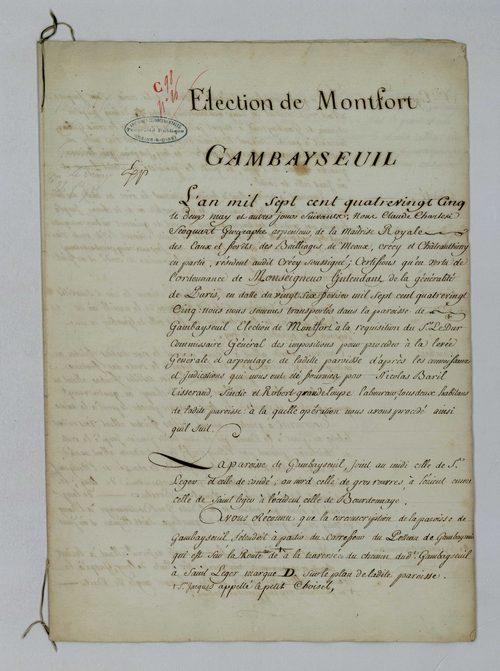 C 98
n° 86
Election de Montfort
GAMBAYSEUIL
L'an mil sept cent quatrevingt Cinq
le deux may et autres jours Suivants, Nous Claude Charles
Geographe arpenteur de la Maitrise Royale
des Eaux et forêts des Bailliages de Meaux, Crécy et Châteauthiery
en partie, résident audit Crécy soussigné; Certifions qu'en vertu de
l'ordonnance de Monseigneur Intendant de la généralité
de Paris, en datte du vingt Six fevrier mil sept cent quatrevingt
Cinq nous nous sommes transportés dans la paroisse de
Gambayseuil Election de Montfort à la requisition du Sr. LeDur
Commissaire Général des impositions pour proceder à la levée
Générale d'arpentage de ladite paroisse d'après les connoissances
et Indications qui nous ont été fournies par Nicolas Baril
Tisserand Sindic et Robert grandeloupe laboureur tous deux habitans
de ladite paroisse à la quelle opération nous avons procédé ainsi
quil Suit.
La paroisse de Gambayseuil, joint au midi celle de St.
Leger et celle de Condé; au nord celle de gros rouvres, à l'orient encore
celle de Saint Léger à l'occident celle de Bourdonnaye.
Avons Reconnu que la circonscription de la paroisse de
Gambayseuil s'etendoit à partir du Carrefour du Poteau de Gambayseuil
qui est Sur la Route de à la traverse du chemin dud. Gambayseuil
à Saint Leger marqué D. Sur le plan de ladite paroisse.
St. Jacques appellé le petit Choisel,